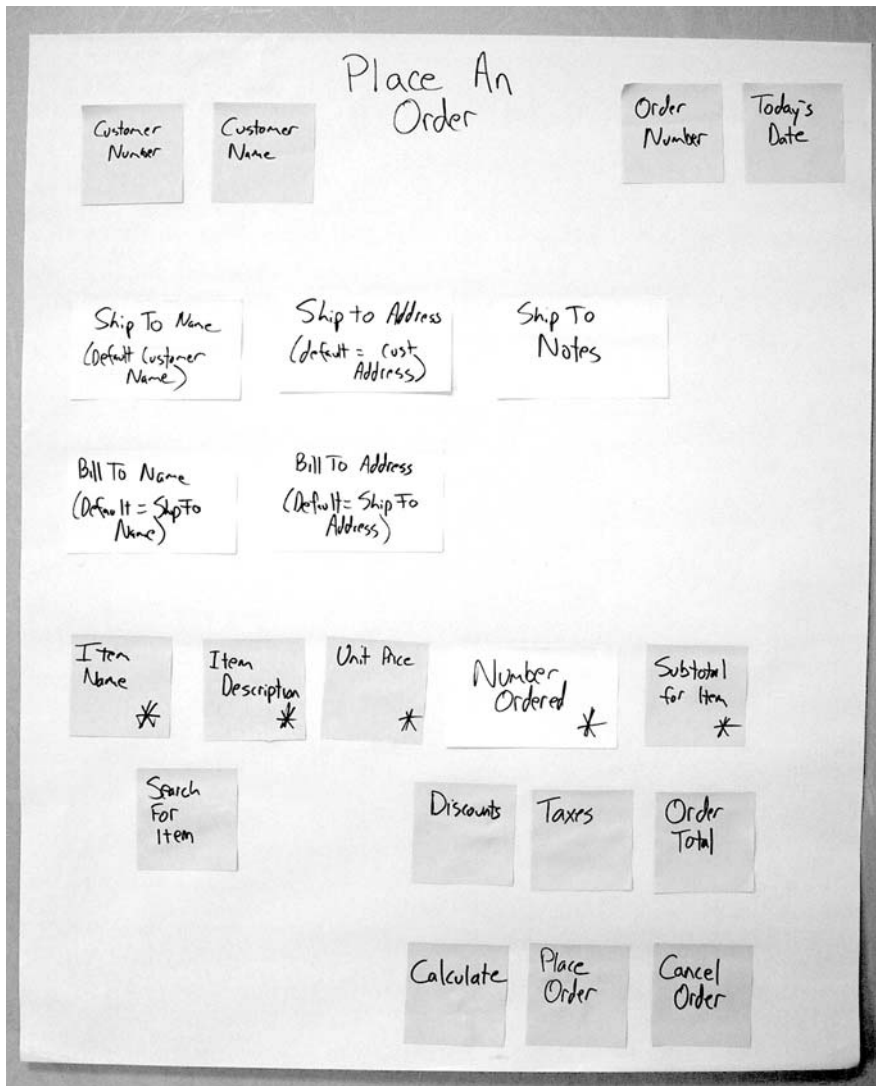 Place An
Order
Customer
Number
Customer
Name
Order
Number
Today's
Date
Ship To Name
(Default Customer
Name)
Ship to Address
(default = Cust
Address)
Ship To
Notes
Bill To Name
(Default = Ship To
Name)
Bill To Address
(Default = Ship To
Address)
Item
Name
*
Item
Description
*
Unit Price
*
Number
Ordered
*
Subtotal
for Item
*
Search
For
Item
Discounts
Taxes
Order
Total
Calculate
Place
Order
Cancel
Order